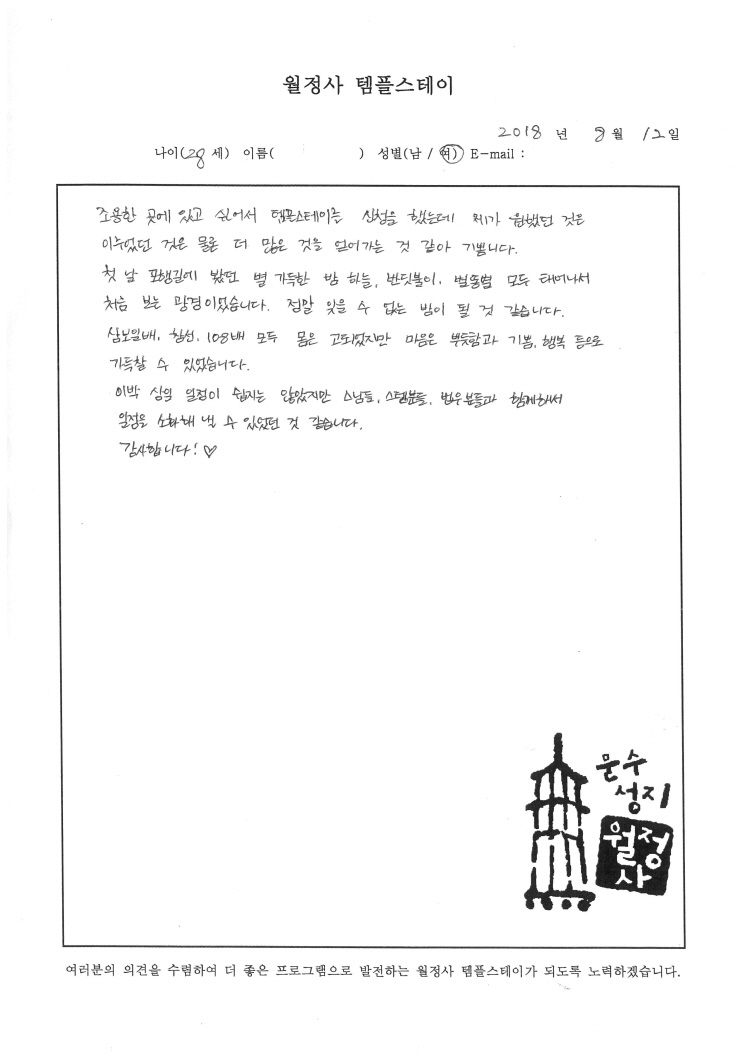 월정사 템플스테이
2018 년 8 월 12 일
나이(28 세) 이름( ) 성별(남 / 여) E-mail :
조용한 곳에 있고 싶어서 템플스테이를 신청을 했는데 제가 원했던 것은
이루었던 것은 물론 더 많은 것을 얻어가는 것 같아 기쁩니다.
첫 날 포행길에 봤던 별 가득한 밤 하늘, 반딧불이, 별똥별 모두 태어나서
처음 보는 광경이었습니다. 정말 잊을 수 없는 밤이 될 것 같습니다.
삼보일배, 참선, 108배 모두 몸은 고되었지만 마음은 뿌듯함과 기쁨, 행복 등으로
가득찰 수 있었습니다.
이박 삼일 일정이 쉽지는 않았지만 스님들, 스텝분들, 법우분들과 함께해서
일정을 소화해 낼 수 있었던 것 같습니다.
감사합니다! ♡
문수
성지
월정
사
여러분의 의견을 수렴하여 더 좋은 프로그램으로 발전하는 월정사 템플스테이가 되도록 노력하겠습니다.